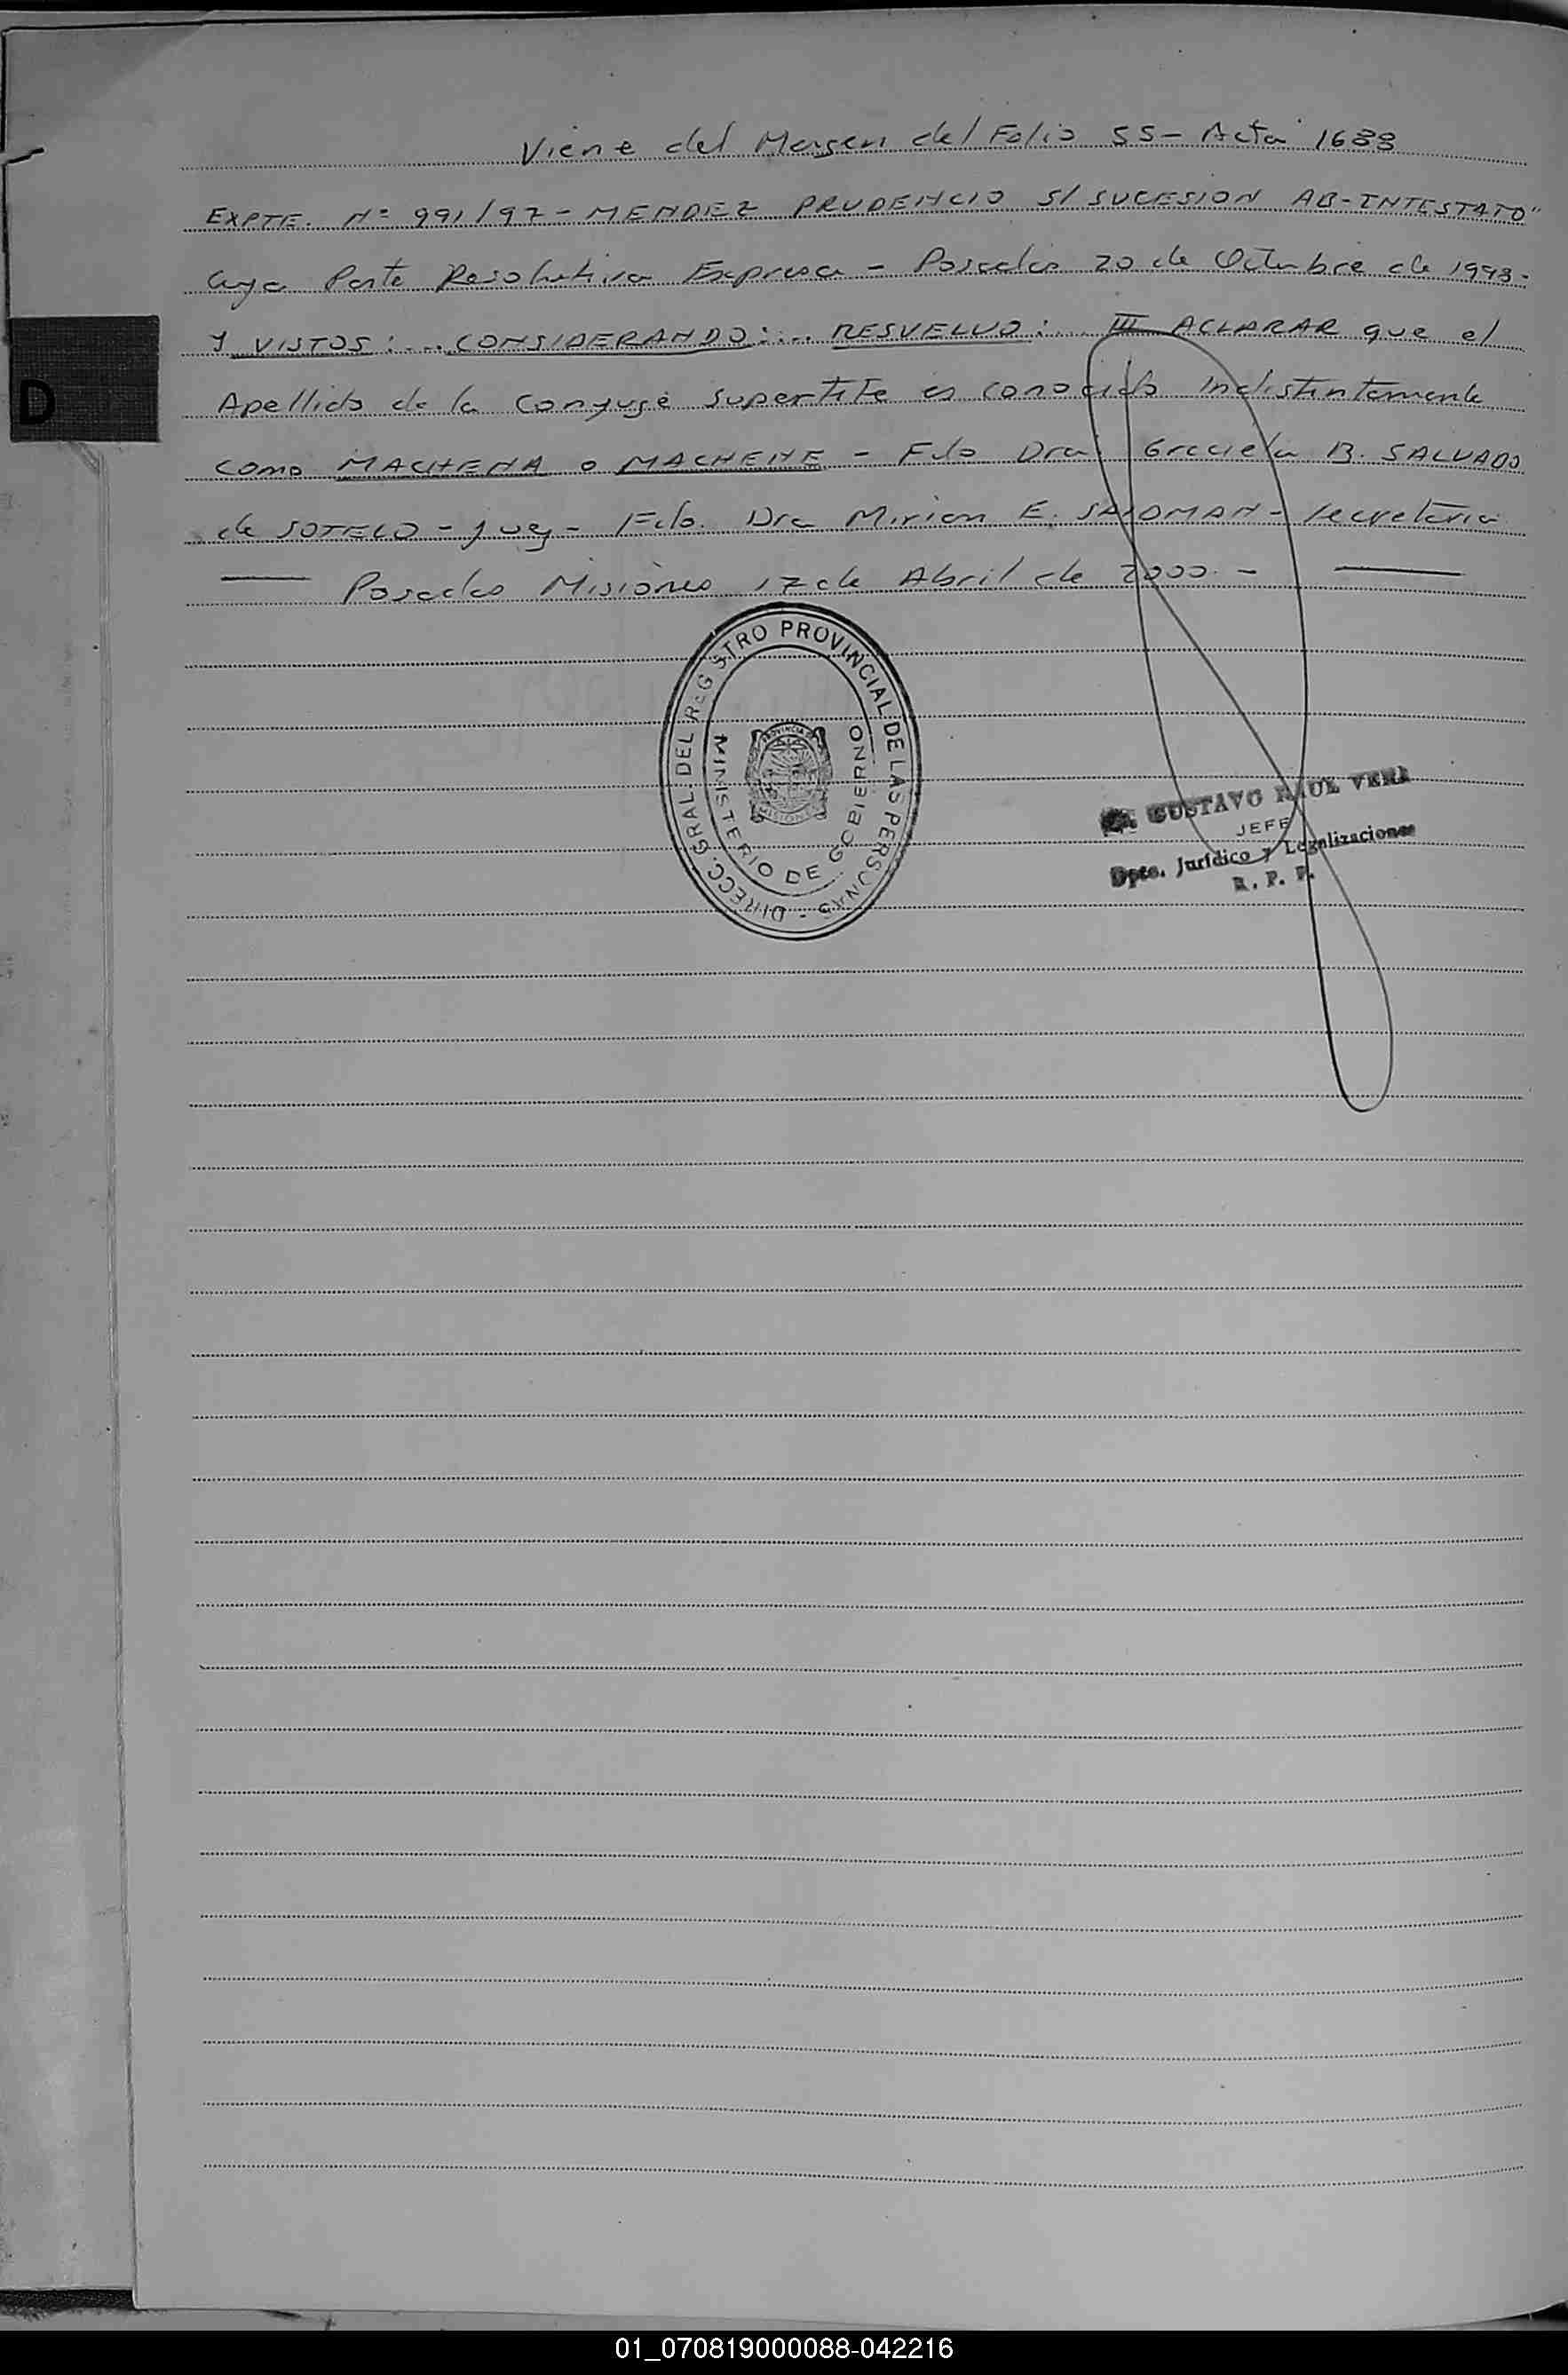 Viene del Margen del Folio 55- Acta 1688
EXPTE. Nº 991/97-MENDEZ PRUDENCIO S/SUCESION AB-INTESTATO"
Cuya Parte Resolutiva Expresa - Posadas 20 de Octubre de 1998-
Y VISTOS:... CONSIDERANDO:... RESUELVO:... III ACLARAR que el
Apellido de la Conyuge Supertite es conocido indistintamente
como MACHENA o MACHENE - Fdo Dra. Graciela B. SALVADO
de SOTELO - Juez - Fdo. Dra Mirian E. SALOMAN - Secretaria
Posadas Misiones 17 de Abril de 2000. -
DIRECC. GRAL. DEL REGISTRO PROVINCIAL DE LAS PERSONAS -
MINISTERIO DE GOBIERNO
PROVINCIA DE
MISIONES
GUSTAVO RAUL VERA
JEFE
Dpto. Jurídico y Legalizaciones
R. P. P.
D
01_070819000088-042216